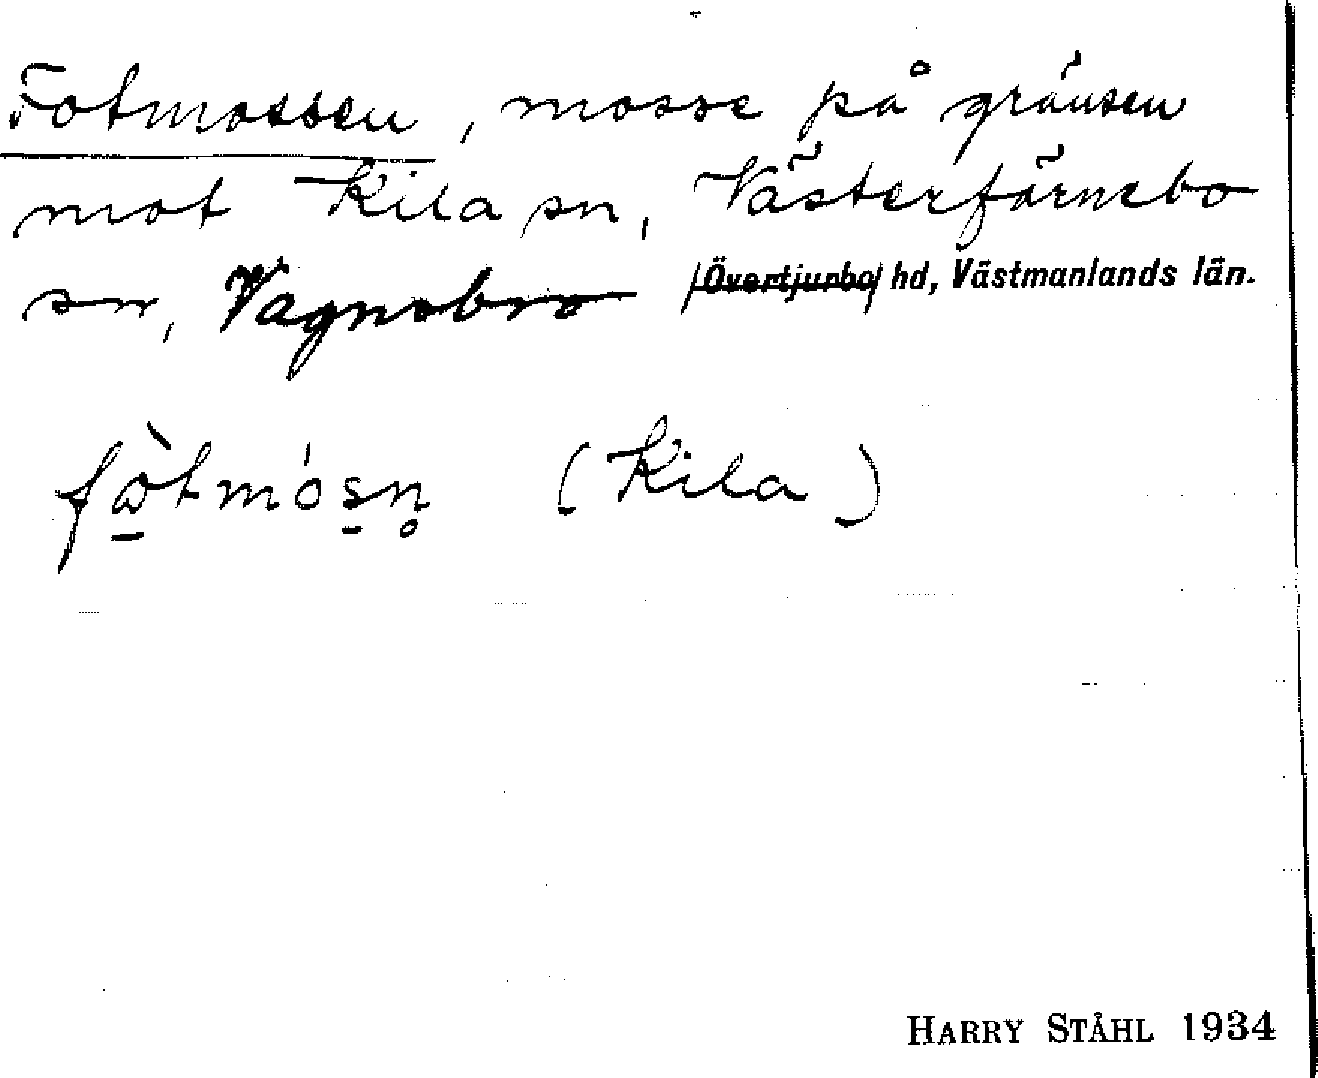 Fotmossen, mosse på gränsen
mot Kila sn, Västerfärnebo
sn, Vagnsbro /Övertjurbo/ hd, Västmanlands län.
fòtmósn̥ (Kila)
HARRY STÅHL 1934